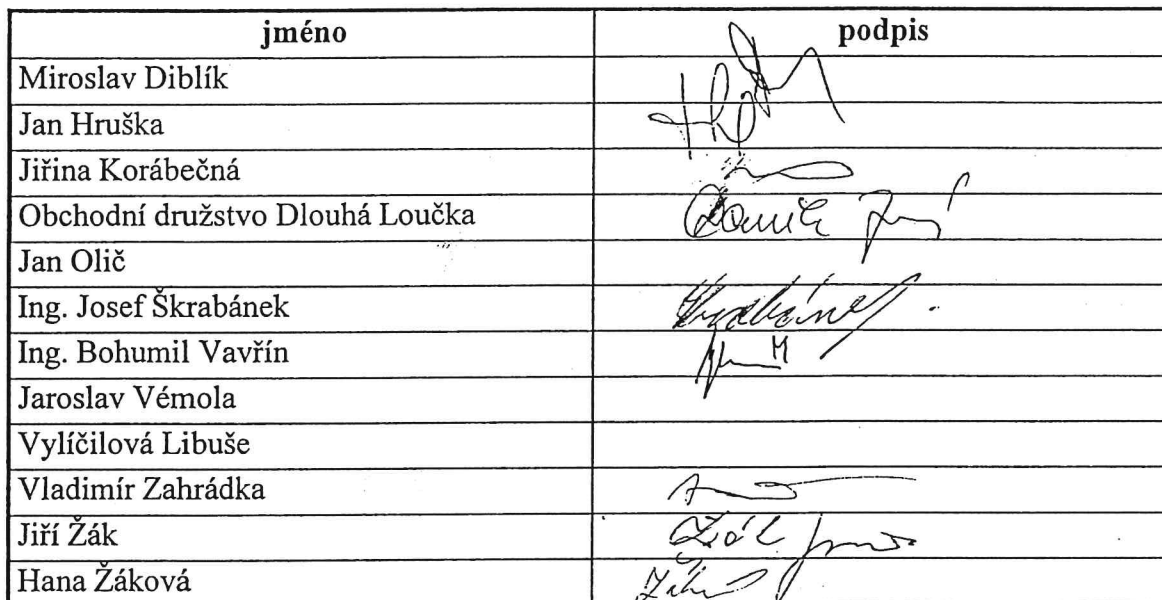 jméno podpis
Miroslav Diblík
Jan Hruška
Jiřina Korábečná
Obchodní družstvo Dlouhá Loučka
Jan Olič
Ing. Josef Škrabánek
Ing. Bohumil Vavřín
Jaroslav Vémola
Vylíčilová Libuše
Vladimír Zahrádka
Jiří Žák
Hana Žáková